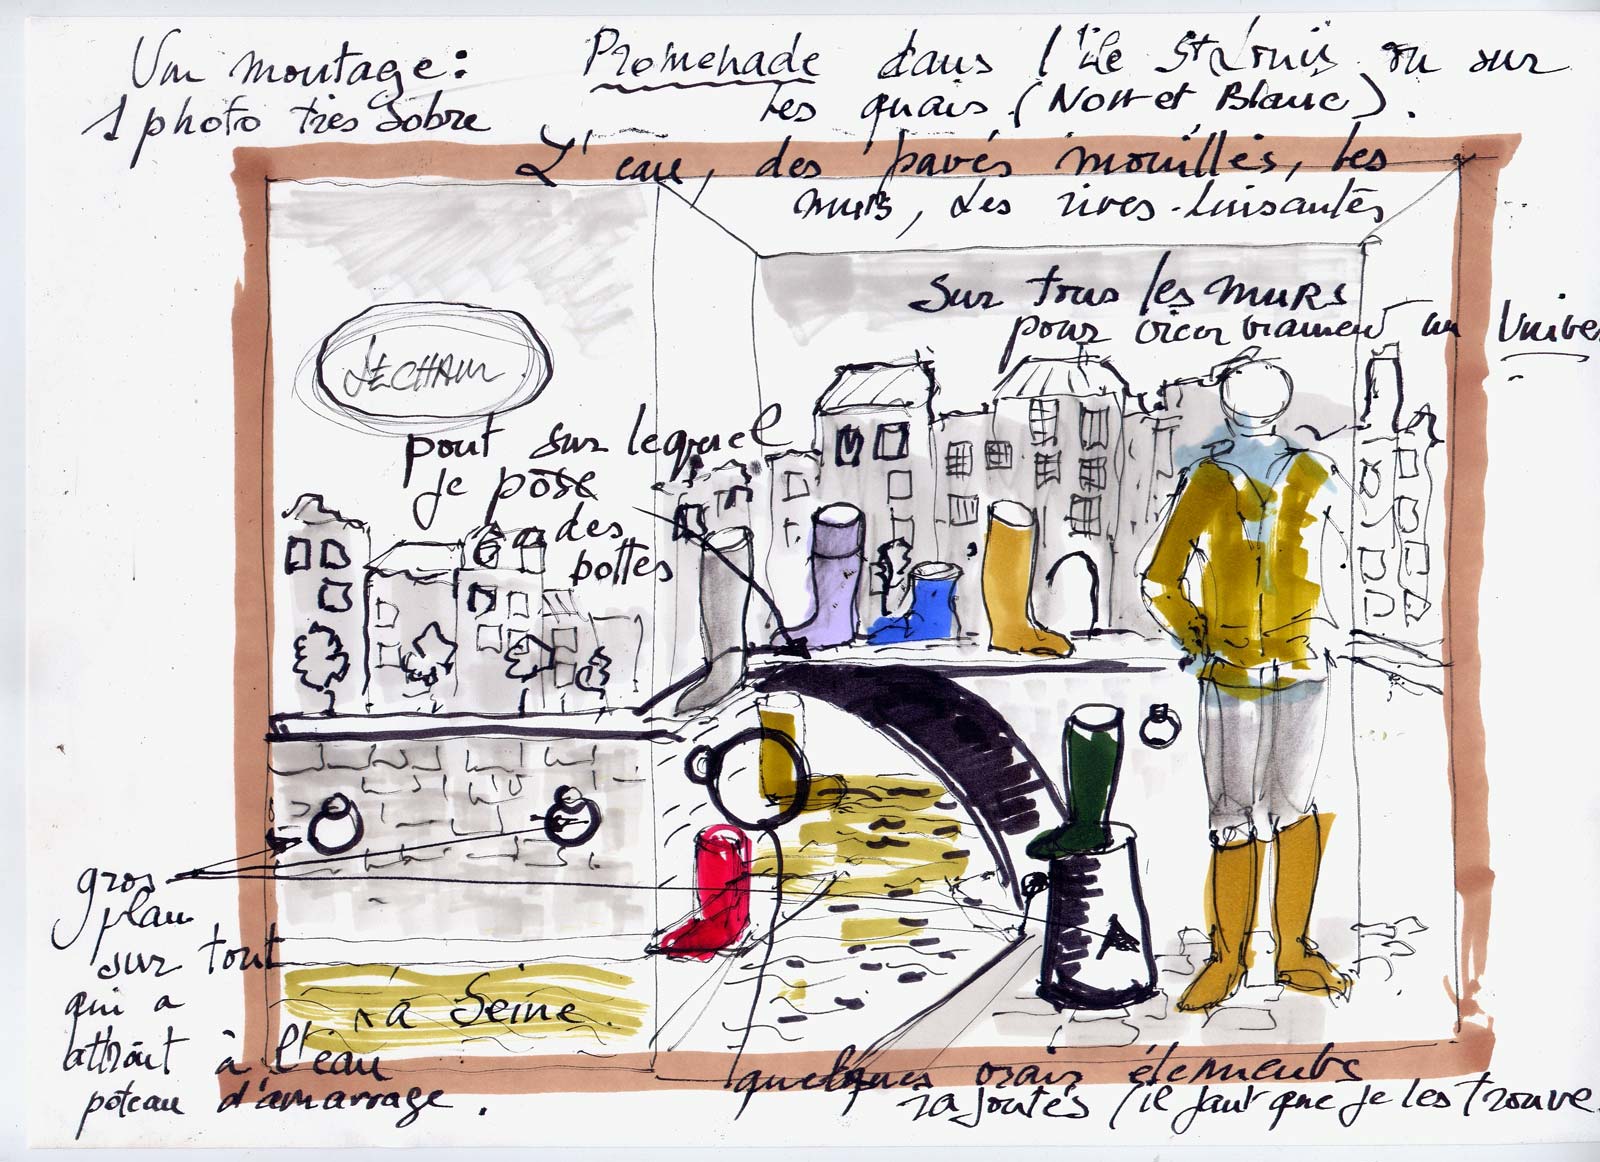 Un montage:
1 photo très sobre
Promenade dans l'île St Louis ou sur
les quais (Noir et Blanc).
L'eau, des pavés mouillés, les
murs, des rives luisantes
sur tous les murs
pour créer vraiment un Unive
pont sur lequel
je pose
des
bottes
gros
plan
sur tout
qui a
attrait à l'eau
poteau d'amarrage.
La Seine.
quelques vrais éléments
rajoutés (il faut que je les trouve